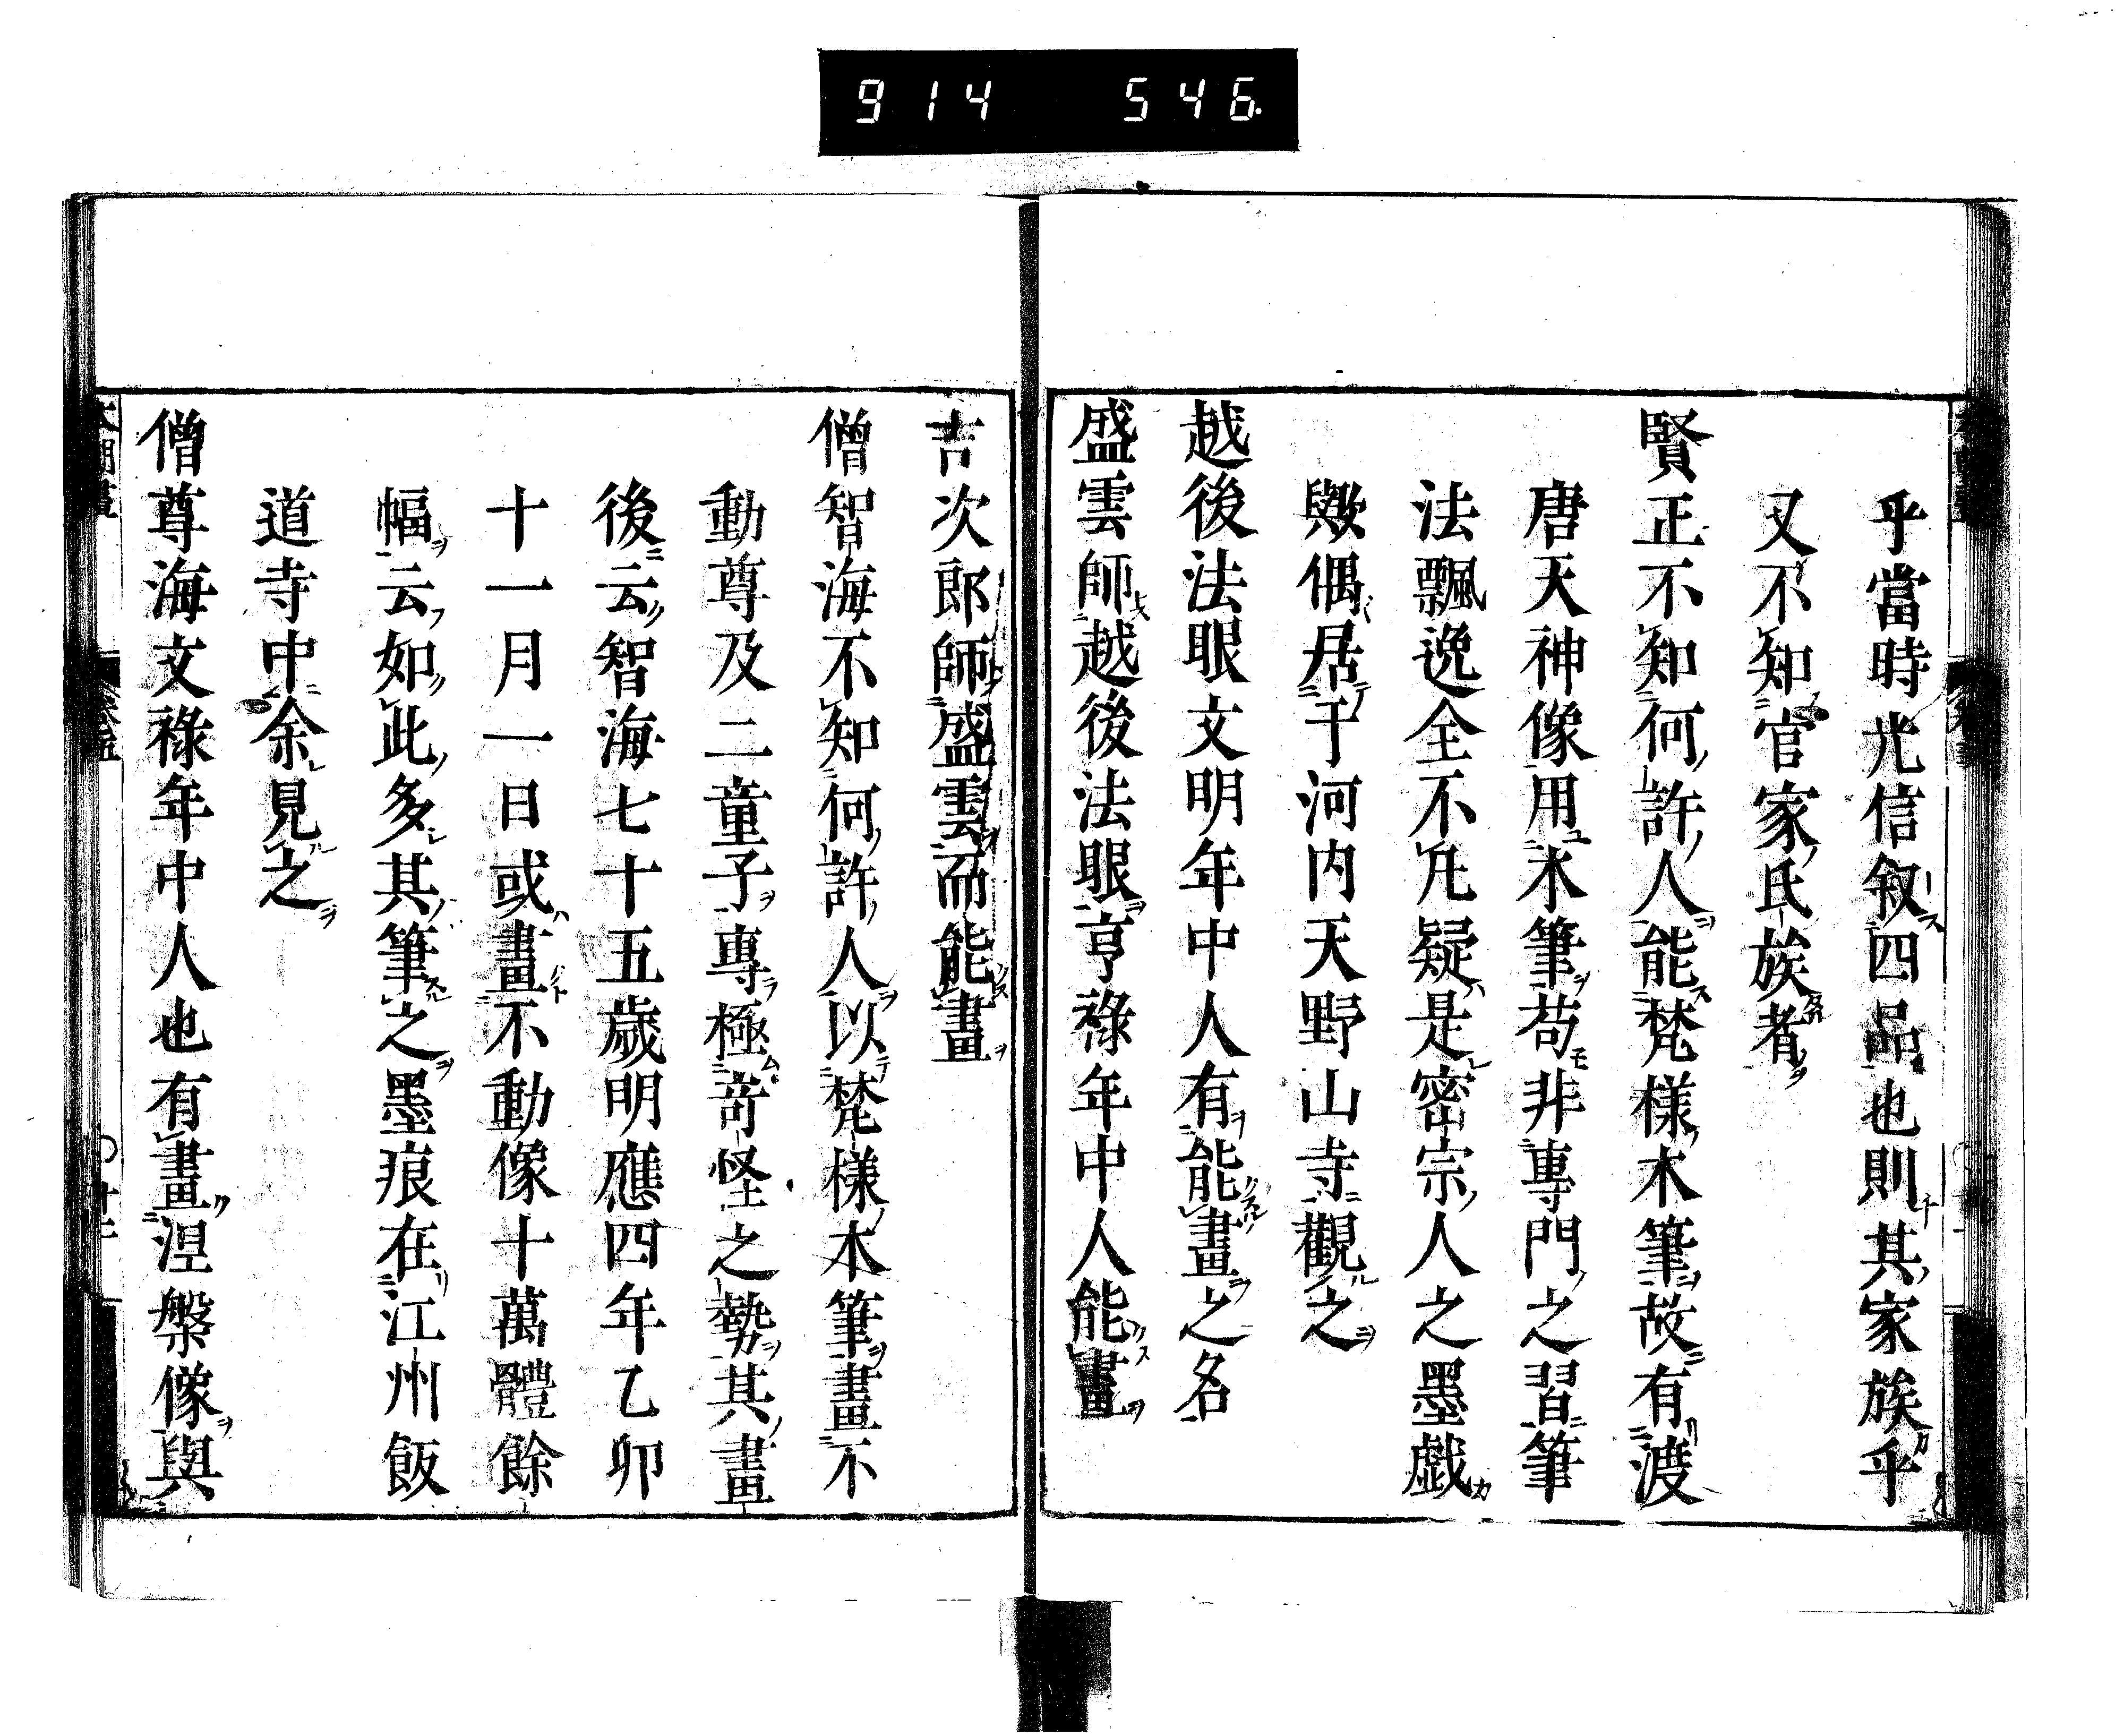 914 546
乎當時光信叙四品也則其家族乎
又不知官家氏族者
賢正不知何許人能梵樣木筆故有渡
唐天神像用木筆苟非專門之習筆
法飄逸全不凡疑是密宗人之墨戲
歟偶居于河内天野山寺觀之
越後法眼文明年中人有能畫之名
盛雲師越後法眼亨祿年中人能畫
吉次郎師盛雲而能畫
僧智海不知何許人以梵樣木筆畫不
動尊及二童子專極奇怪之勢其畫
後云智海七十五歲明應四年乙卯
十一月一日或畫不動像十萬體餘
幅云如此多其筆之墨痕在江州飯
道寺中余見之
僧尊海文祿年中人也有畫涅槃像與